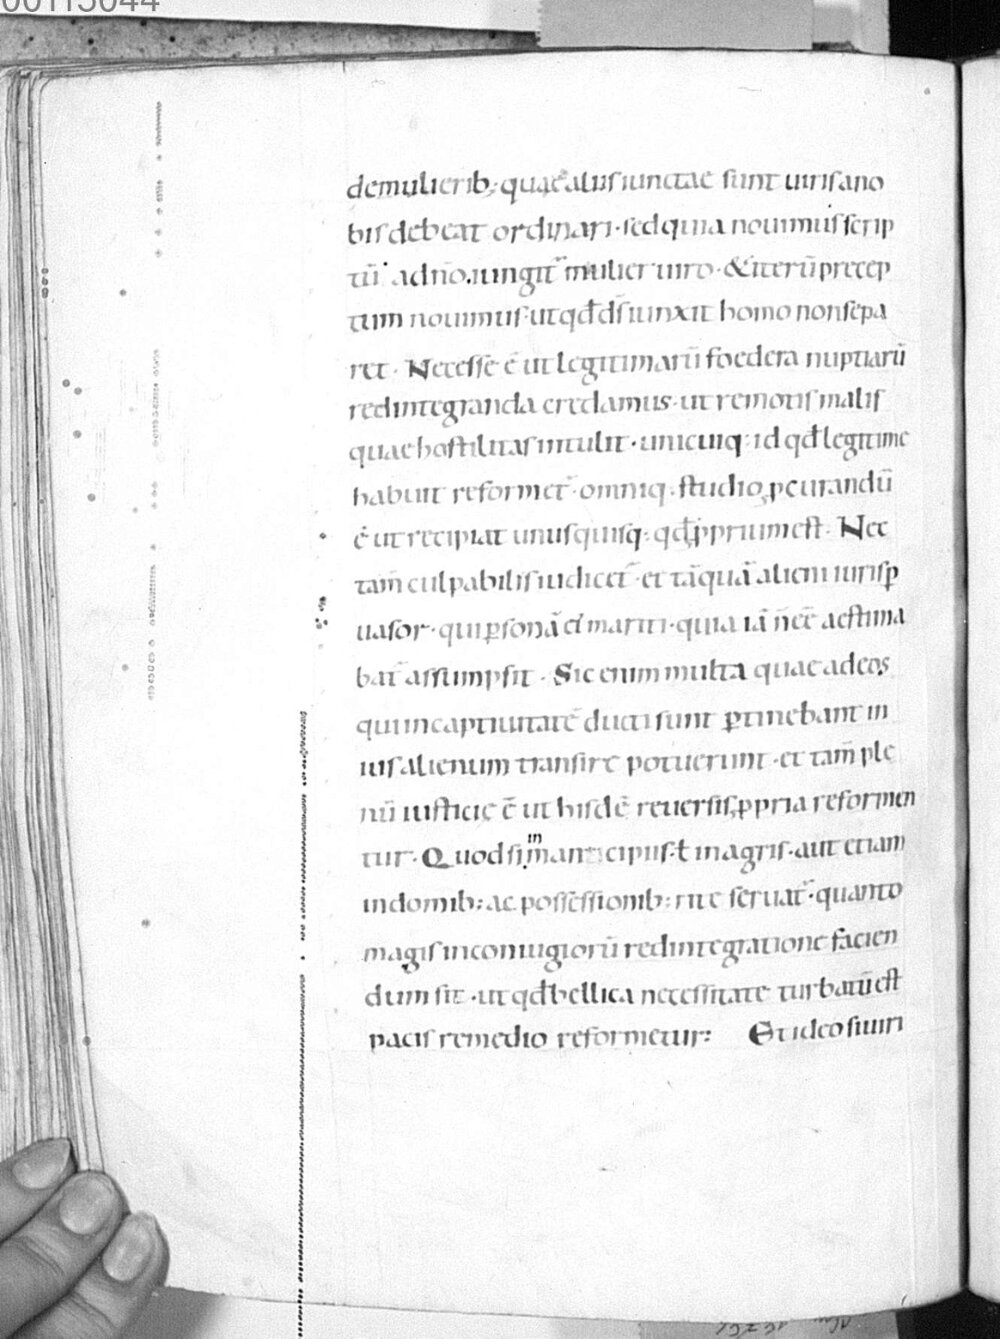 00113044
demulierib; quae aliis iunctae sunt uiris a no
bis debeat ordinari · sed quia nouimus scrip
tū adn̄o iungit᷑ mulier uiro · & iterū precep
tum nouimus · ut qđ d̄s iunxit homo non sepa
ret · Necesse ē ut legitimarū foedera nuptiarū
redintegranda credamus · ut remotis malis
quae hostilitas intulit · unicuiq: id qđ legitime
habuit reformet᷑ · omniq· studio ꝓcurandū
ē ut recipiat unusquisq: qđ ꝓprium est · Nec
tam̄ culpabilis iudicet᷑ · et tāquā alieni iuris ꝑ
uasor · qui ꝑsonā ei mariti · quia iā n̄ eē aestima
bat᷑ assumpsit · Sic enim multa quae ad eos
qui in captiuitatē ducti sunt ꝑtinebant in
ius alienum transire potuerunt · et tam̄ ple
nū iusticie ē ut hisdē reuersis ꝓpria reformen
tur · Quod si in mancipiis · ł in agris · aut etiam
in domib: ac possessionib: rite seruat᷑ · quanto
magis in coniugiorū redintegratione facien
dum sit · ut qđ bellica necessitate turbatū est
pacis remedio reformetur: Et ideo si uiri